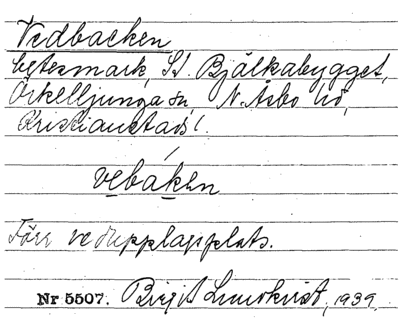 Vedbacken
betesmark, St. Bjälkabygget,
Örkelljunga sn, N. Åsbo hd,
Kristianstads l.
vebákən
Förr vedupplagsplats.
Nr 5507. Birgit Lundkvist, 1939.